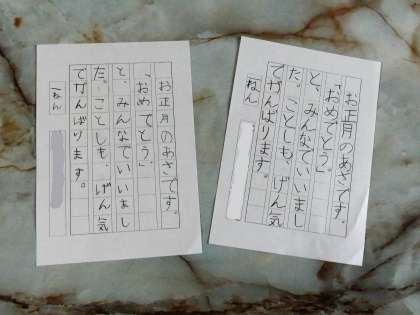 お正月のあさです。
「おめでとう」
と、みんなでいいまし
た。ことしも、げん気
でがんばります。
一ねん
お正月のあさです。
「おめでとう」
と、みんなでいいまし
た。ことしも、げん気
でがんばります。
一ねん